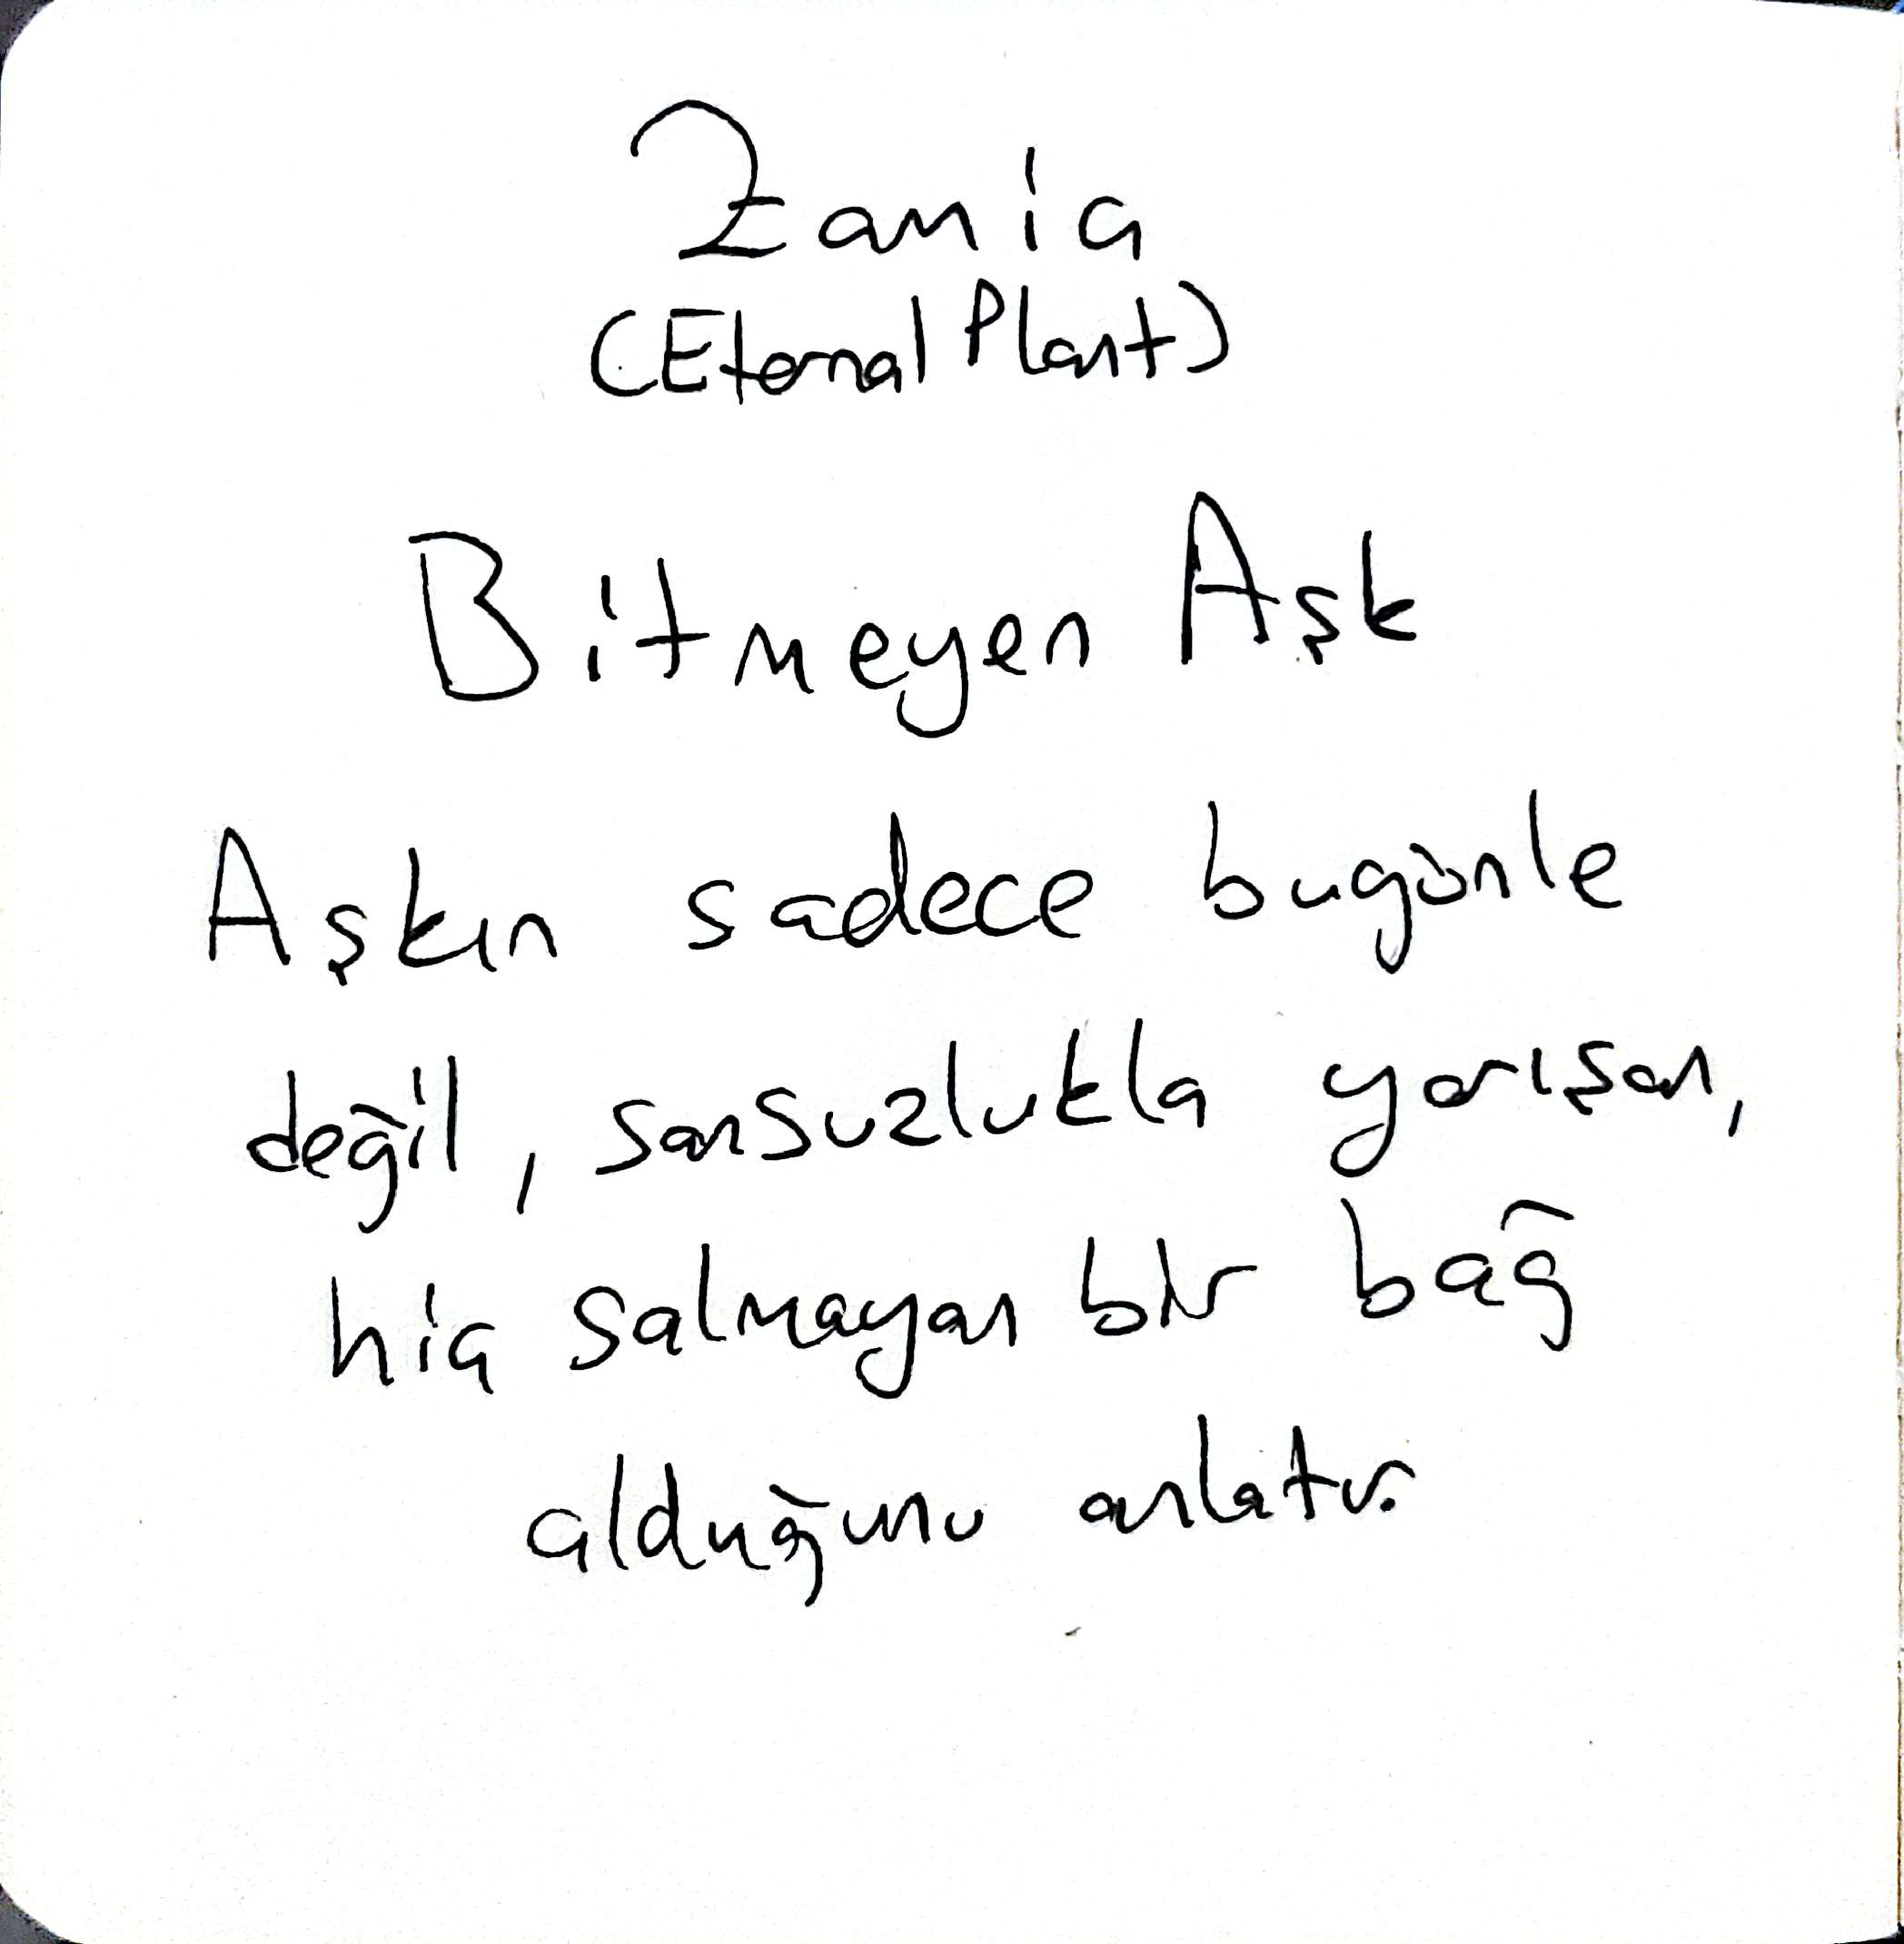 Zamia
(Eternal Plant)
Bitmeyen Aşk
Aşkın sadece bugünle
değil, sonsuzlukla yarışan,
hiç solmayan bir bağ
olduğunu anlatır.